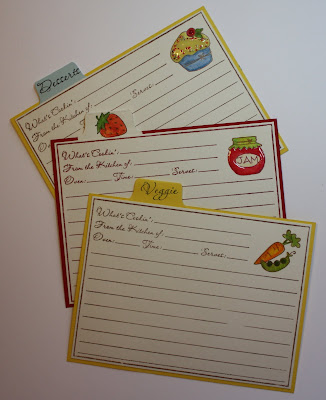 Desserts
What's Cookin':
From the Kitchen of:
Oven: Serves:
What's Cookin':
From the Kitchen of:
Oven: Time: Serves:
JAM
Veggie
What's Cookin':
From the Kitchen of:
Oven: Time: Serves: